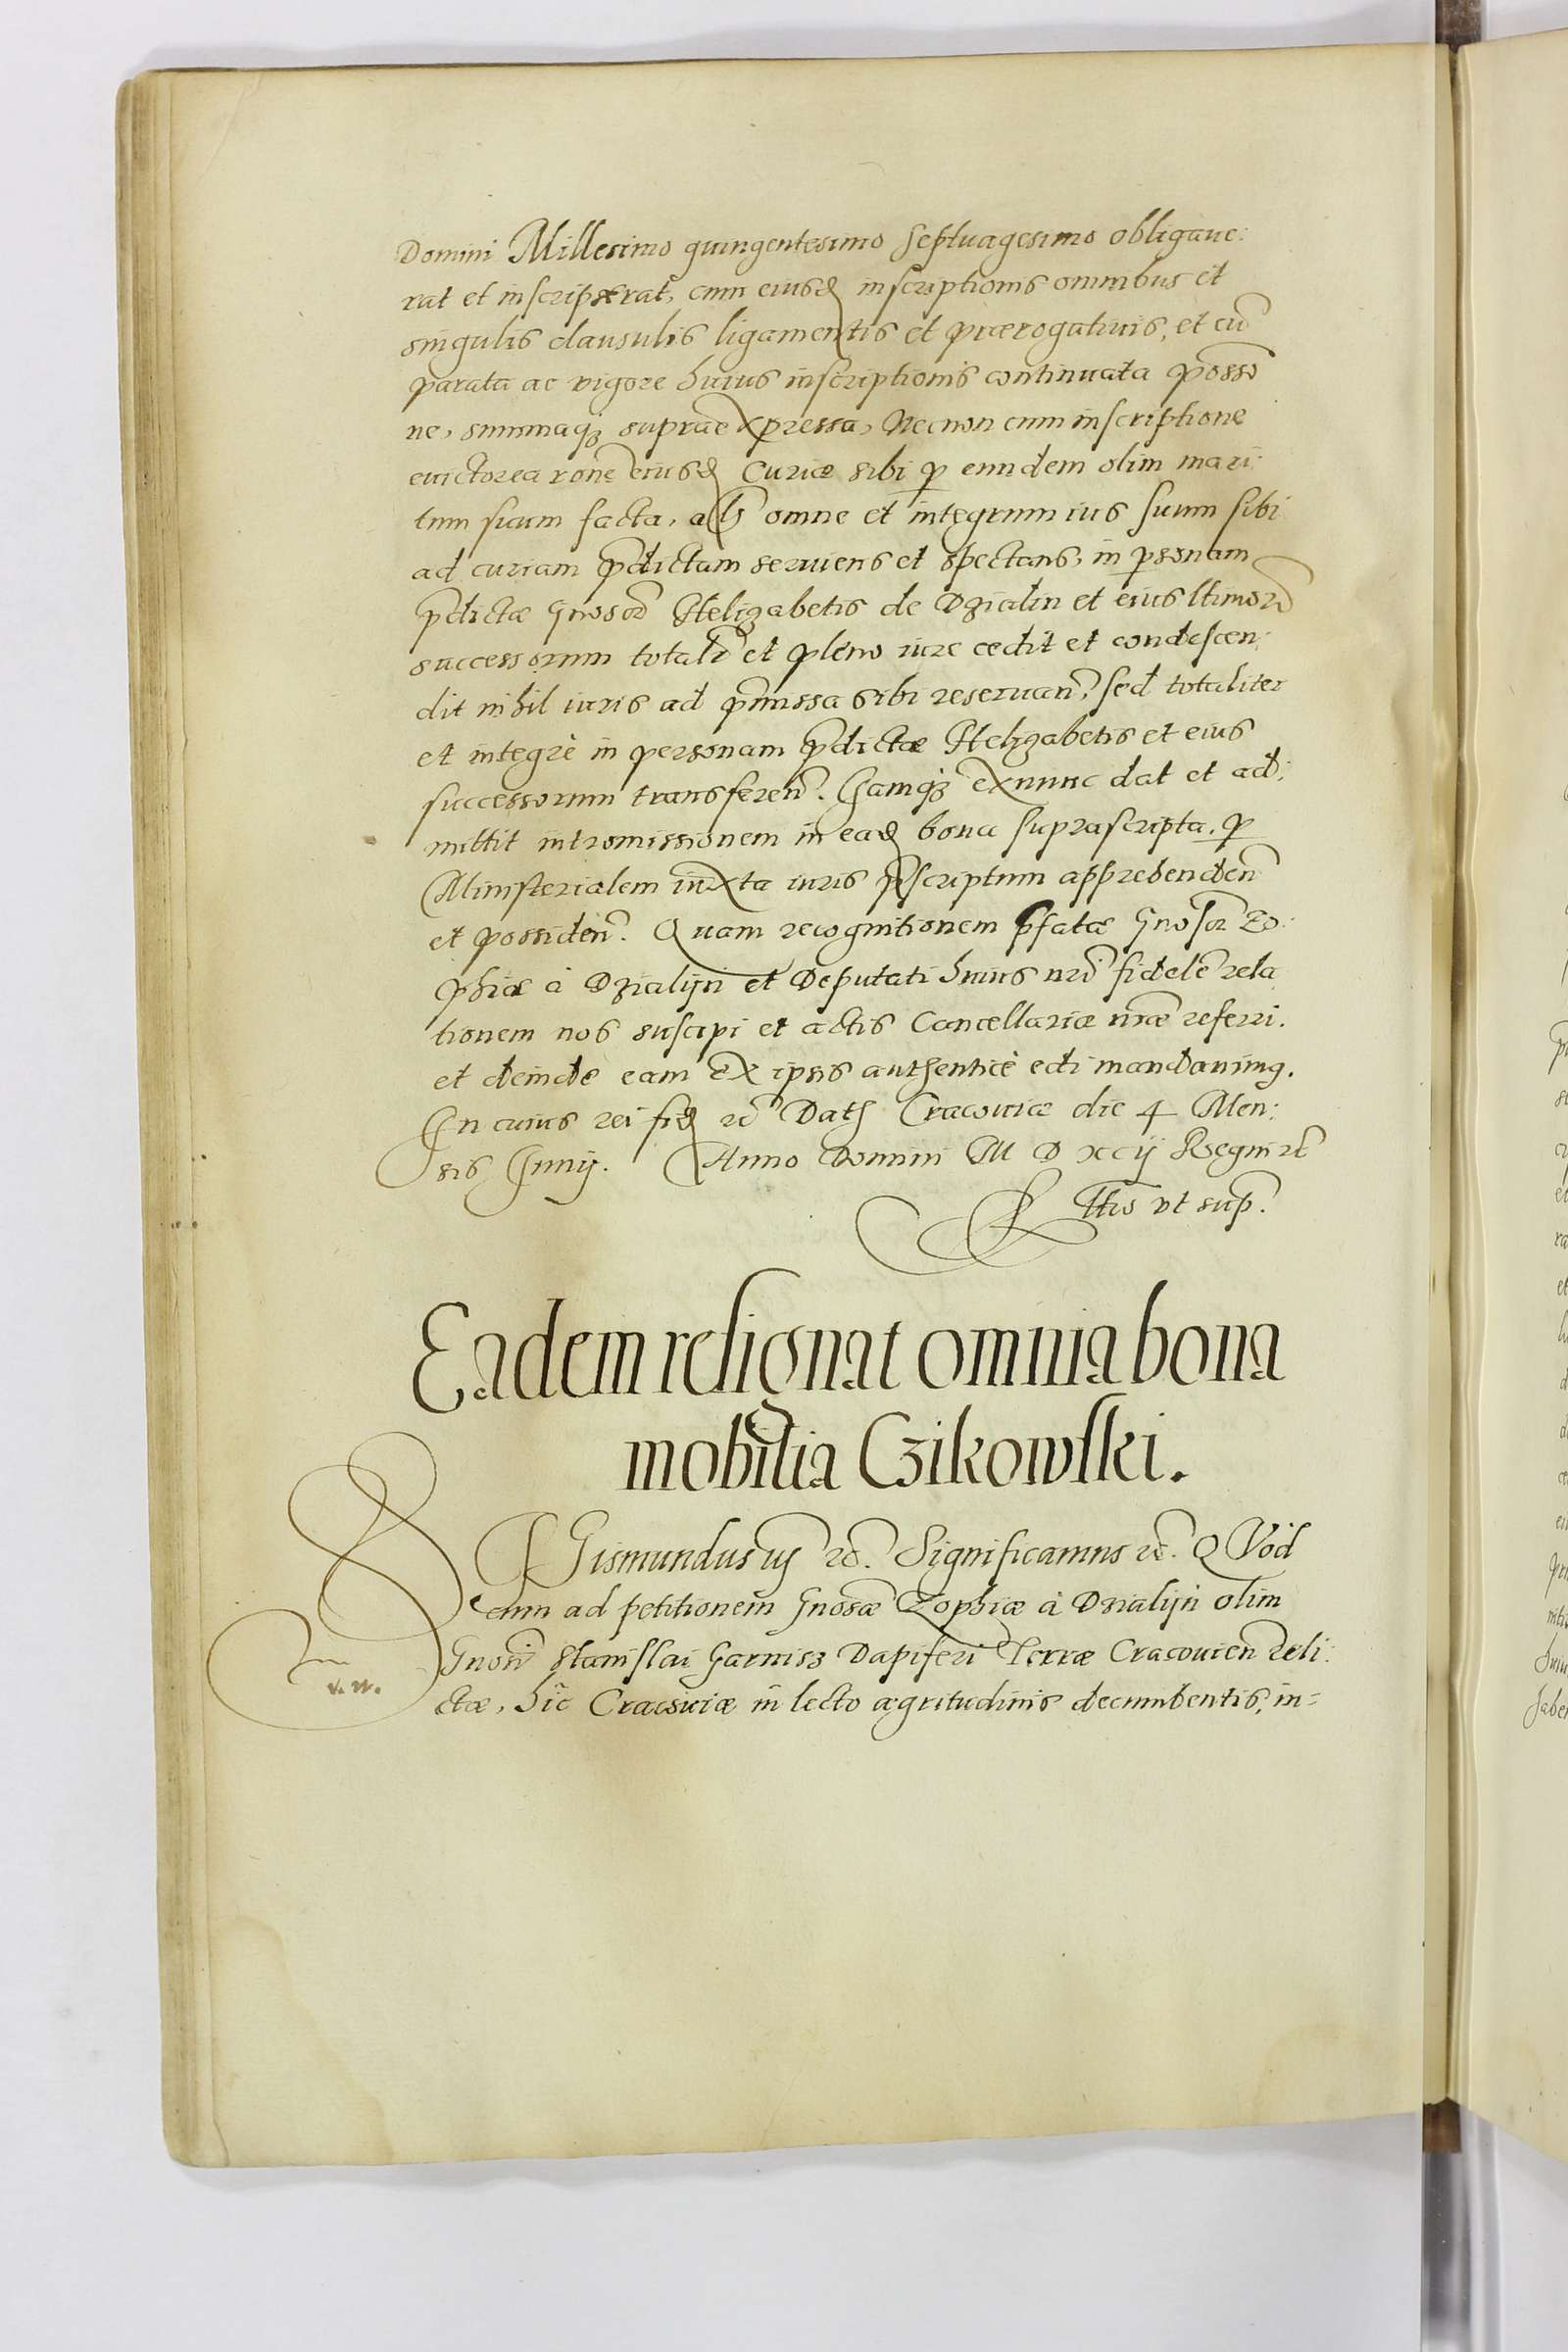 Domini Millesimo quingentesimo septuagesimo obligaue:
rat et inscripserat, cum eiusd inscriptionis omnibus et
singulis clausulis ligamentis et prærogatiuis, et cū
parata ac vigore huius inscriptionis continuata posso
ne, summaqȝ supra expressa, Necnon cum inscriptione
euictorea rone eiusd Curiæ sibi ꝑ eundem olim mari:
tum suum facta, ac omne et integrum ius suum sibi
ad curiam pdictam seruiens et spectans, in psonam
pdictæ Gnosæ Helizabetis de Dzialin et eius ltimor
successorum totalr et pleno iure cedit et condescen:
dit nihil iuris ad pmissa sibi reseruan, sed totaliter
et integrè in personam pdictæ Helizabetis et eius
successorum transferen. Iamqȝ ex nunc dat et ad:
mittit intromissionem in ead bona suprascripta, ꝑ
Ministerialem iuxta iuris pscriptum apprehenden
et possiden. Quam recognitionem pfatæ Gnosæ Zo:
phiæ à Dzialijn et Deputati huius nri fidele rela
tionem nos suscipi et actis Cancellariæ nræ referri.
et deinde eam ex ipsis authenticè edi mandauimꝰ.
In cuius rei fid ꝛc̄ Dat Cracouiæ die 4 Men:
sis Junij. Anno Domini M D xcij Regni ꝛc̄
Rltio vt sup.
Eadem resignat omnia bona
mobilia Czikowski.
SIGismundus iij ꝛc̄. Significamus ꝛc̄. QVod
cum ad petitionem Gnosæ Zophiæ à Dzialijn olim
Gnosi Stanislai Garnisz Dapiferi Terræ Cracouien reli:
ctæ, hic Cracouiæ in lecto ægritudinis decumbentis, in=